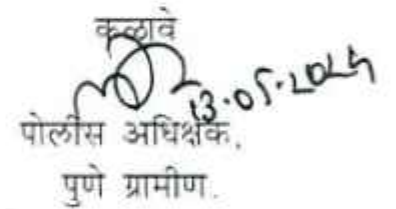 कळावे
13.05.2025
पोलीस अधिक्षक,
पुणे ग्रामीण.